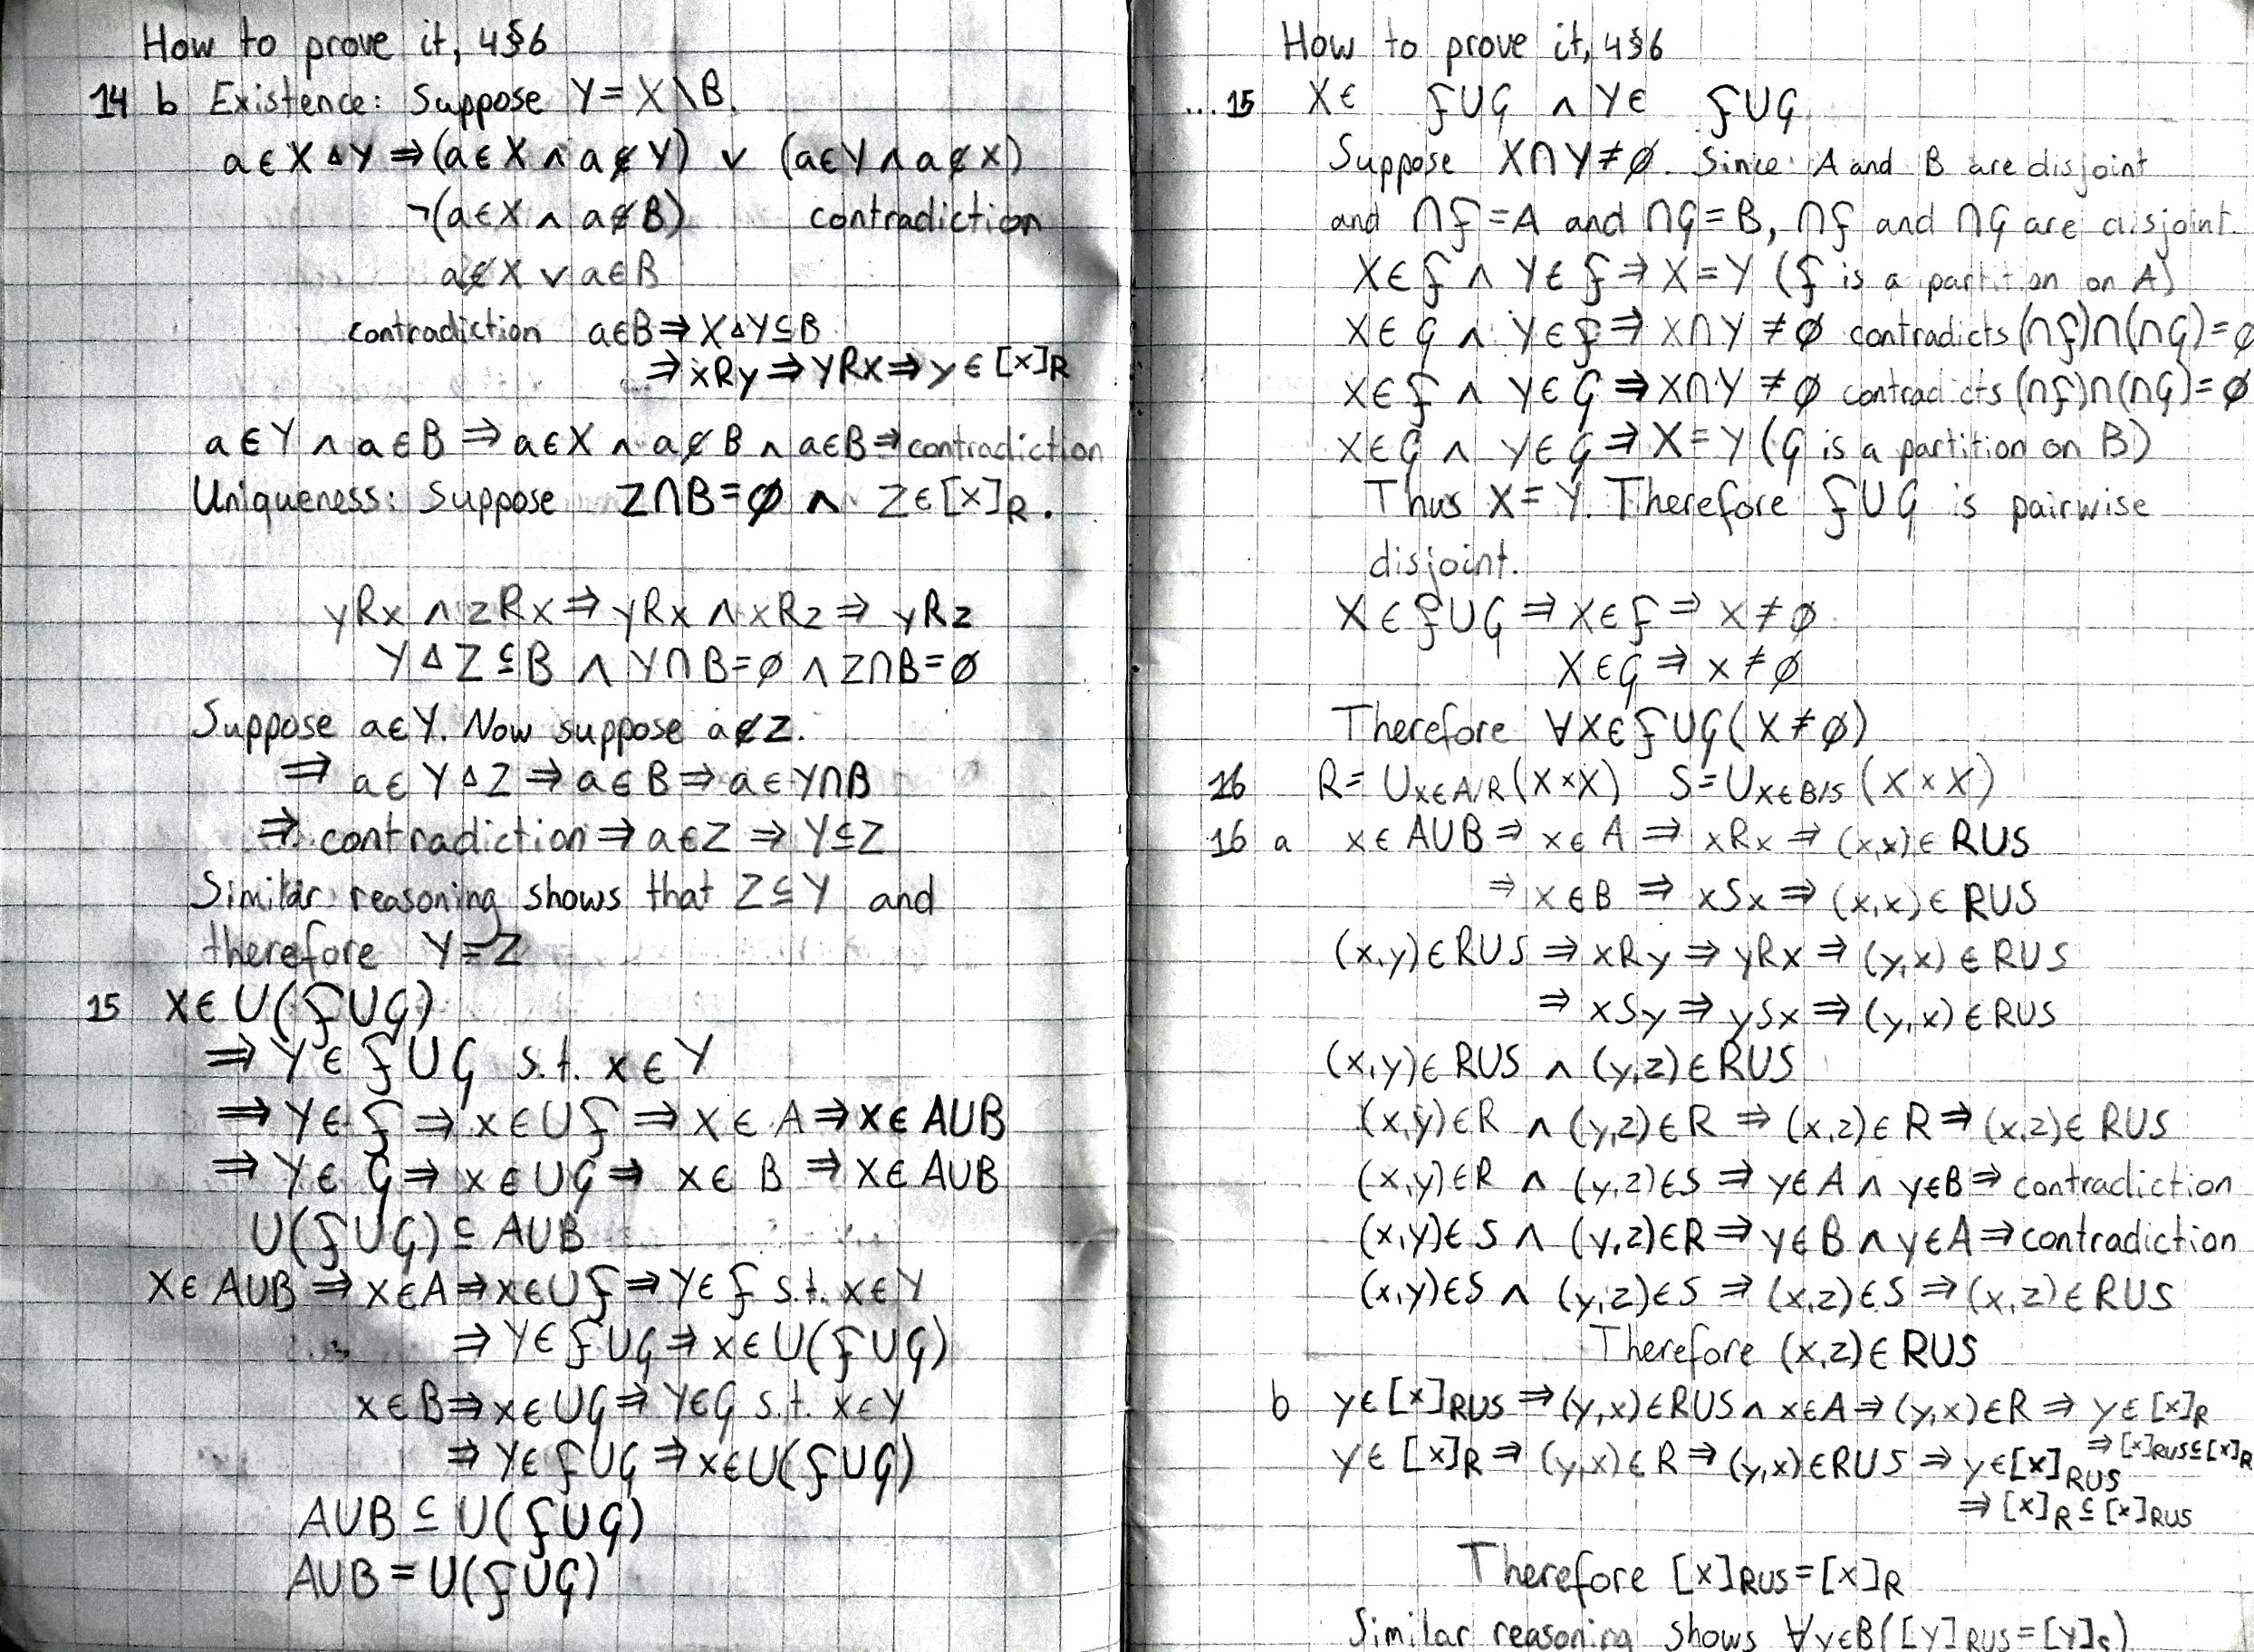 How to prove it, 4§6
14 b Existence: Suppose Y = X \ B.
a ∈ X Δ Y ⇒ (a ∈ X ∧ a ∉ Y) ∨ (a ∈ Y ∧ a ∉ X)
¬(a ∈ X ∧ a ∉ B) contradiction
a ∉ X ∨ a ∈ B
contradiction a ∈ B ⇒ X Δ Y ⊆ B
⇒ xRy ⇒ yRx ⇒ y ∈ [x]R
a ∈ Y ∧ a ∈ B ⇒ a ∈ X ∧ a ∉ B ∧ a ∈ B ⇒ contradiction
Uniqueness: Suppose Z ∩ B = ∅ ∧ Z ∈ [x]R.
yRx ∧ zRx ⇒ yRx ∧ xRz ⇒ yRz
Y Δ Z ⊆ B ∧ Y ∩ B = ∅ ∧ Z ∩ B = ∅
Suppose a ∈ Y. Now suppose a ∉ Z.
⇒ a ∈ Y Δ Z ⇒ a ∈ B ⇒ a ∈ Y ∩ B
⇒ contradiction ⇒ a ∈ Z ⇒ Y ⊆ Z
Similar reasoning shows that Z ⊆ Y and
therefore Y = Z
15 x ∈ ∪(F ∪ G)
⇒ Y ∈ F ∪ G s.t. x ∈ Y
⇒ Y ∈ F ⇒ x ∈ ∪F ⇒ x ∈ A ⇒ x ∈ A∪B
⇒ Y ∈ G ⇒ x ∈ ∪G ⇒ x ∈ B ⇒ x ∈ A∪B
∪(F ∪ G) ⊆ A∪B
x ∈ A∪B ⇒ x ∈ A ⇒ x ∈ ∪F ⇒ Y ∈ F s.t. x ∈ Y
⇒ Y ∈ F ∪ G ⇒ x ∈ ∪(F ∪ G)
x ∈ B ⇒ x ∈ ∪G ⇒ Y ∈ G s.t. x ∈ Y
⇒ Y ∈ F ∪ G ⇒ x ∈ ∪(F ∪ G)
A∪B ⊆ ∪(F ∪ G)
A∪B = ∪(F ∪ G)
How to prove it, 4§6
...15 X ∈ F ∪ G ∧ Y ∈ F ∪ G
Suppose X ∩ Y ≠ ∅. Since A and B are disjoint
and ∩F = A and ∩G = B, ∩F and ∩G are disjoint.
X ∈ F ∧ Y ∈ F ⇒ X = Y (F is a partition on A)
X ∈ G ∧ Y ∈ F ⇒ X ∩ Y ≠ ∅ contradicts (∩F)∩(∩G) = ∅
X ∈ F ∧ Y ∈ G ⇒ X ∩ Y ≠ ∅ contradicts (∩F)∩(∩G) = ∅
X ∈ G ∧ Y ∈ G ⇒ X = Y (G is a partition on B)
Thus X = Y. Therefore F ∪ G is pairwise
disjoint.
X ∈ F ∪ G ⇒ X ∈ F ⇒ X ≠ ∅
X ∈ G ⇒ X ≠ ∅
Therefore ∀X ∈ F ∪ G (X ≠ ∅)
16 R = ∪X∈A/R (X × X) S = ∪X∈B/S (X × X)
16 a x ∈ A∪B ⇒ x ∈ A ⇒ xRx ⇒ (x,x) ∈ R∪S
⇒ x ∈ B ⇒ xSx ⇒ (x,x) ∈ R∪S
(x,y) ∈ R∪S ⇒ xRy ⇒ yRx ⇒ (y,x) ∈ R∪S
⇒ xSy ⇒ ySx ⇒ (y,x) ∈ R∪S
(x,y) ∈ R∪S ∧ (y,z) ∈ R∪S
(x,y) ∈ R ∧ (y,z) ∈ R ⇒ (x,z) ∈ R ⇒ (x,z) ∈ R∪S
(x,y) ∈ R ∧ (y,z) ∈ S ⇒ y ∈ A ∧ y ∈ B ⇒ contradiction
(x,y) ∈ S ∧ (y,z) ∈ R ⇒ y ∈ B ∧ y ∈ A ⇒ contradiction
(x,y) ∈ S ∧ (y,z) ∈ S ⇒ (x,z) ∈ S ⇒ (x,z) ∈ R∪S
Therefore (x,z) ∈ R∪S
b y ∈ [x]R∪S ⇒ (y,x) ∈ R∪S ∧ x ∈ A ⇒ (y,x) ∈ R ⇒ y ∈ [x]R
⇒ [x]R∪S ⊆ [x]R
y ∈ [x]R ⇒ (y,x) ∈ R ⇒ (y,x) ∈ R∪S ⇒ y ∈ [x]R∪S
⇒ [x]R ⊆ [x]R∪S
Therefore [x]R∪S = [x]R
Similar reasoning shows ∀y∈B([y]R∪S = [y]S)